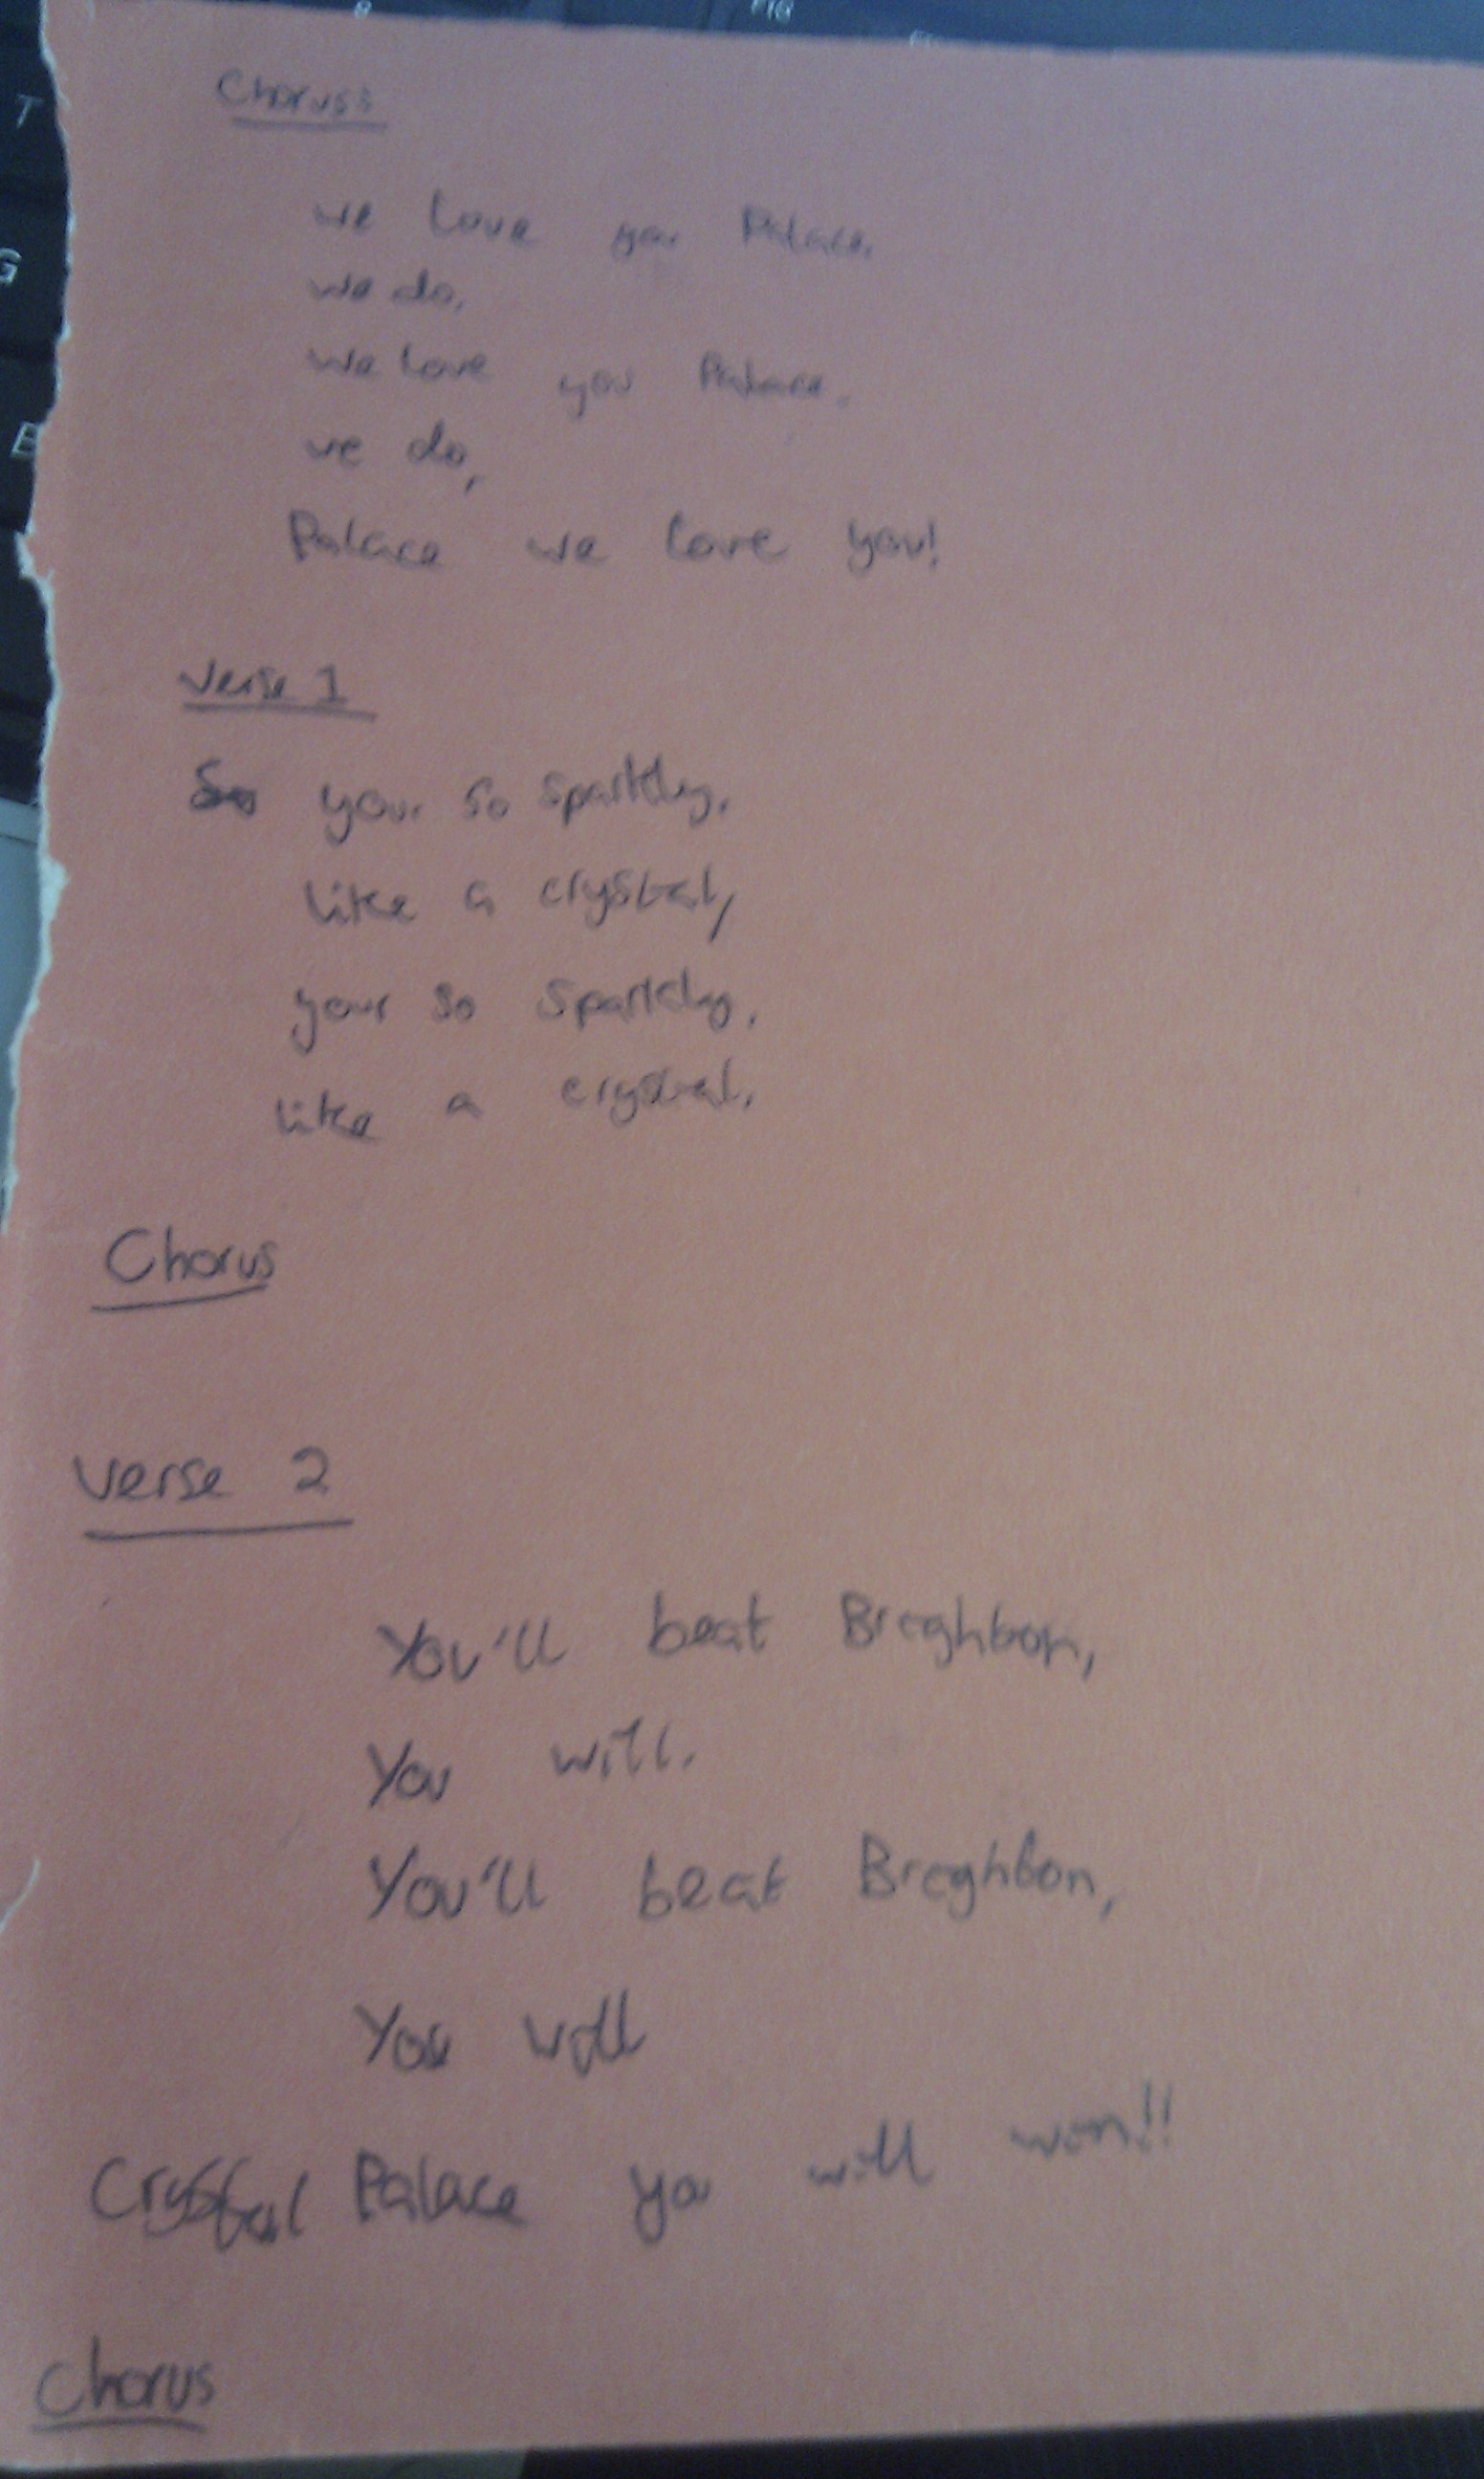 Chorus:
we love you Palace.
we do,
we love you Palace.
we do,
Palace we love you!
Verse 1
So your so sparkley,
like a crystal,
your so sparkley,
like a crystal.
Chorus
verse 2
You'll beat Breghton,
You will.
You'll beat Breghton,
You will
Crystal Palace you will win!!
Chorus